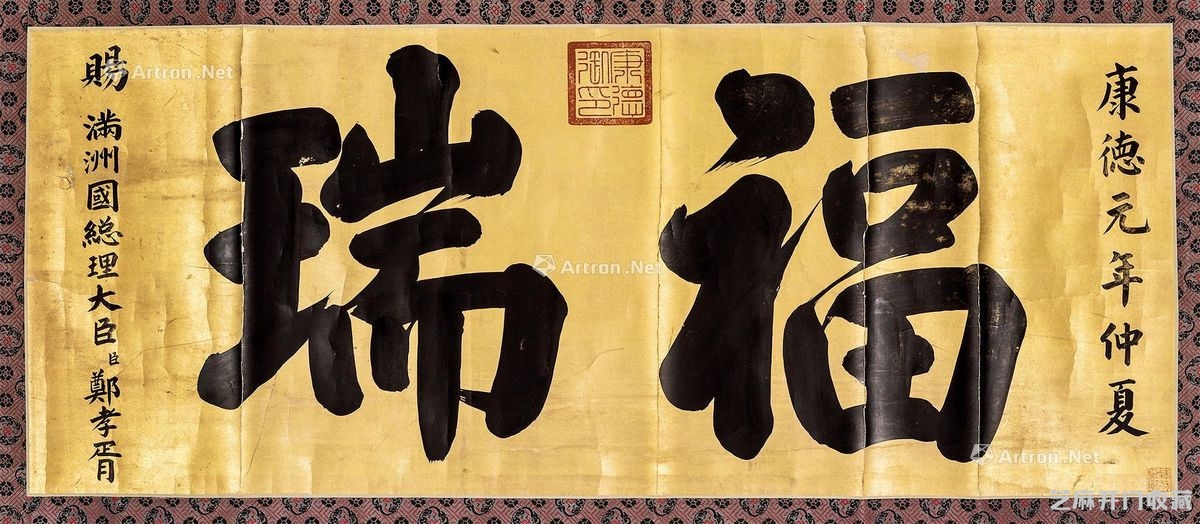 康德元年仲夏
福瑞
康德御印
賜 滿洲國總理大臣臣鄭孝胥
Artron.Net
Artron.Net
Artron.Net
芝麻开门收藏